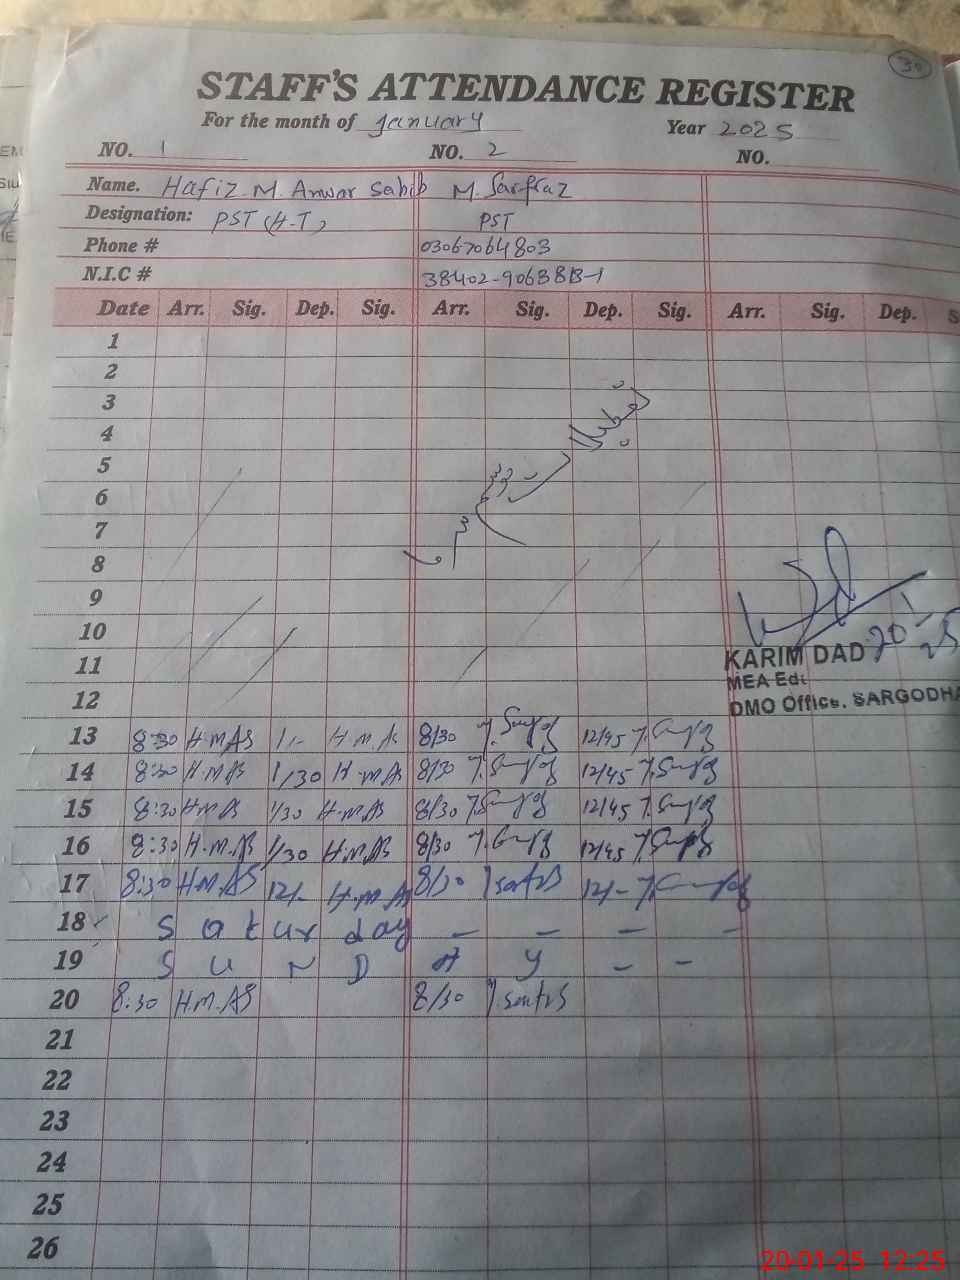 30
STAFF'S ATTENDANCE REGISTER
For the month of January Year 2025
NO. 1 NO. 2 NO.
Name. Hafiz M. Anwar Sahib M. Sarfraz
Designation: PST (H-T) PST
Phone # 03067064803
N.I.C # 38402-9063813-1
Date Arr. Sig. Dep. Sig. Arr. Sig. Dep. Sig. Arr. Sig. Dep. S
1
2
3
4
5
6
7
8
9
10
11
KARIM DAD 20/1/25
MEA Edu
12
DMO Office. SARGODHA
13 8:30 H.M.AS 1/- H.M.AS 8/30 12/45
14 8:30 H.M.AS 1/30 H.M.AS 8/30 12/45
15 8:30 H.M.AS 1/30 H.M.AS 8/30 12/45
16 8:30 H.M.AS 1/30 H.M.AS 8/30 12/45
17 8:30 H.M.AS 12/- H.M.AS 8/30 12/-
18 Saturday - - - -
19 SUNDAY - -
20 8:30 H.M.AS 8/30
21
22
23
24
25
26
20-01-25 12:25